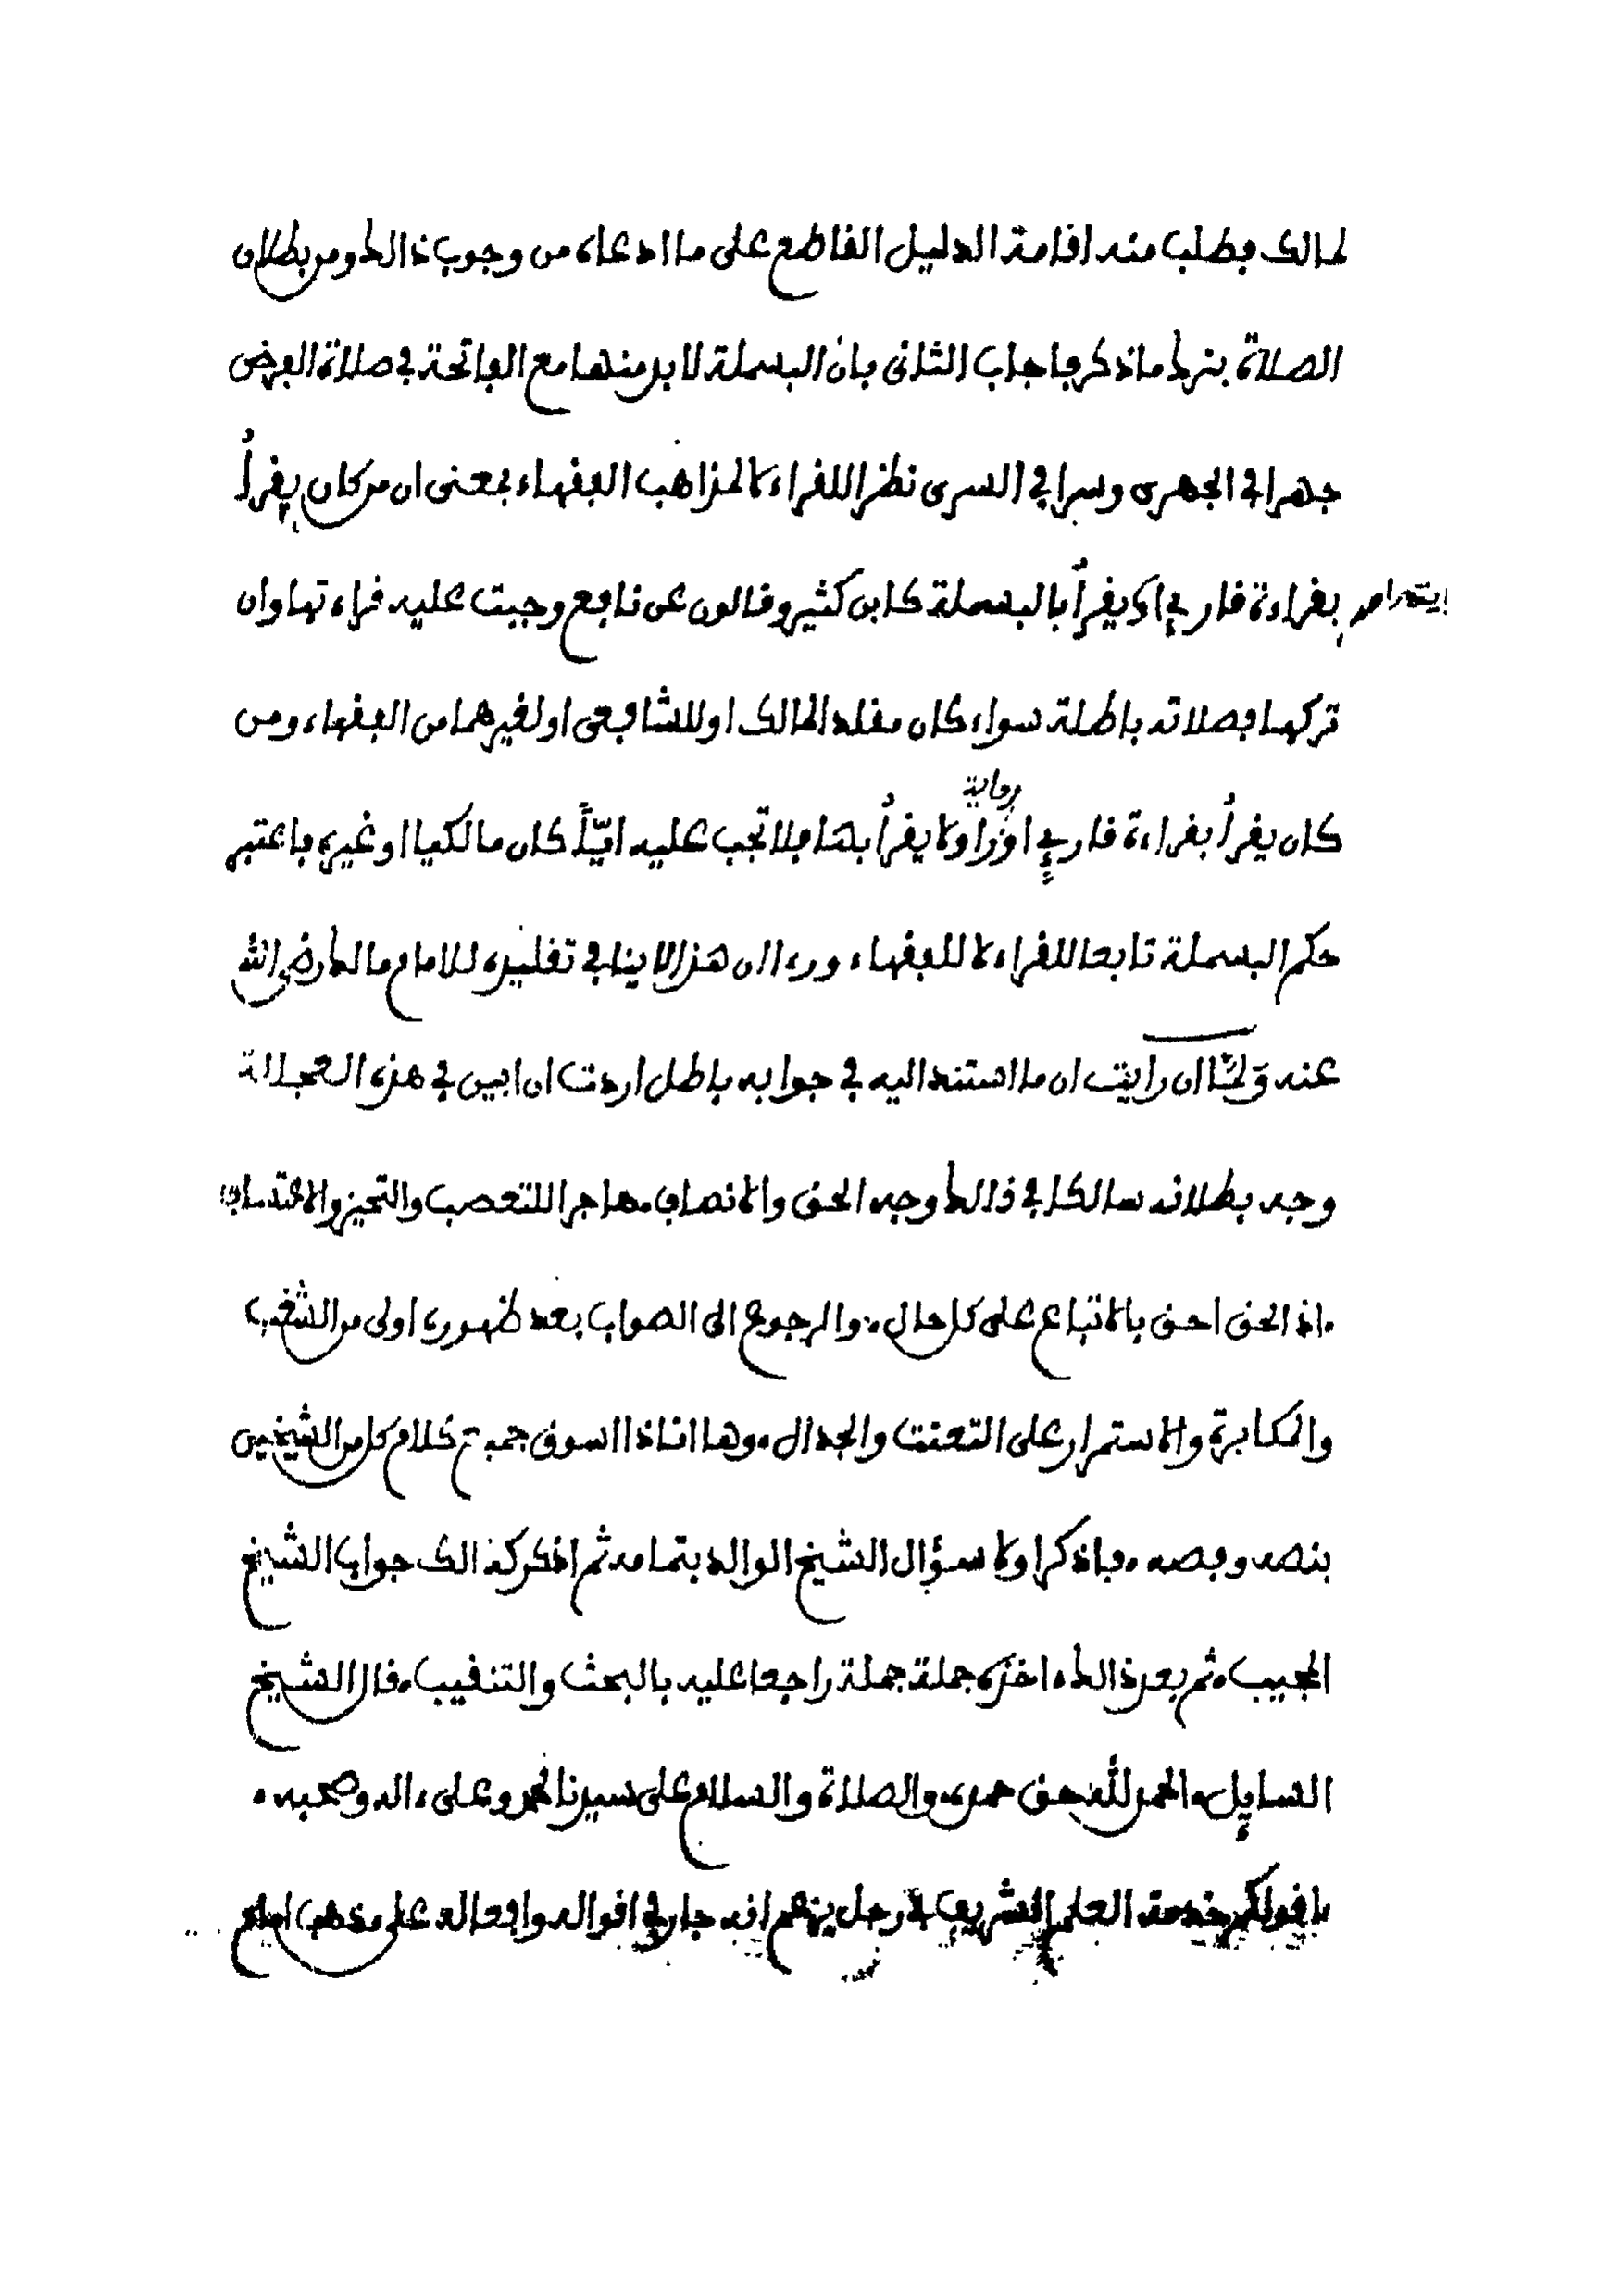 لمالك فطلب منه اقامة الدليل القاطع على ما ادعاه من وجوب ذالك ومن بطلان
الصلاة بترك ما ذكر فاجاب الثانى بان البسملة لا بد منها مع الفاتحة في صلاة الفرض
جهرا في الجهرى وسرا في السرى نظرا للقراء لا لمذاهب الفقهاء بمعنى ان من كان يقرأ
بقراءة قارئ او يقرأ بالبسملة كابن كثير وقالون عن نافع وجبت عليه قراءتها وان
تركها فصلاته باطلة سواء كان مقلدا لمالك او للشافعى او لغيرهما من الفقهاء ومن
كان يقرأ بقراءة قارئ او راو رواية لا يقرأ بها فلا تجب عليه ايًّا كان مالكيا او غيره فاعتبر
حكم البسملة تابعا للقراء لا للفقهاء ورءا ان هذا لا ينافي تقليده للامام مالك رضي الله
عنه ولمّا ان رايت ان ما استند اليه في جوابه باطل اردت ان ابين في هذه العجالة
وجه بطلانه سالكا في ذالك وجه الحق والانصاف. هاجرا للتعصب والتحيز والاعتساف
. اذ الحق احق بالاتباع على كل حال. والرجوع الى الصواب بعد ظهوره اولى من الشغب
والمكابرة والاستمرار على التعنت والجدال. وها انا ذا اسوق جميع كلام كل من الشيخين
بنصه وفصه. فاذكر اولا سؤال الشيخ الوالد بتمامه ثم اذكر كذالك جواب الشيخ
المجيب. ثم بعد ذالك اخذه جملة جملة راجعا عليه بالبحث والتنقيب. قال الشيخ
السايل. الحمد لله حق حمده. والصلاة والسلام على سيدنا محمد وعلى ءاله وصحبه.
ما قولكم خدمة العلم الشريف في رجل يزعم انه جار في اقواله وافعاله على مذهب امام